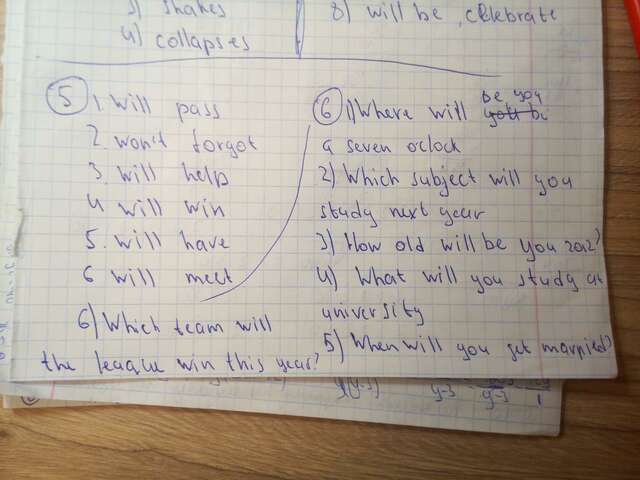 3) shakes
4) collapses
8) will be, celebrate
5 1. will pass
2. won't forgot
3. will help
4 will win
5. will have
6 will meet
6) Which team will
the league win this year?
6 1) Where will be you
a seven o'clock
2) Which subject will you
study next year
3) How old will be you
4) What will you study at
university
5) When will you get married?
y-3
y-3
1